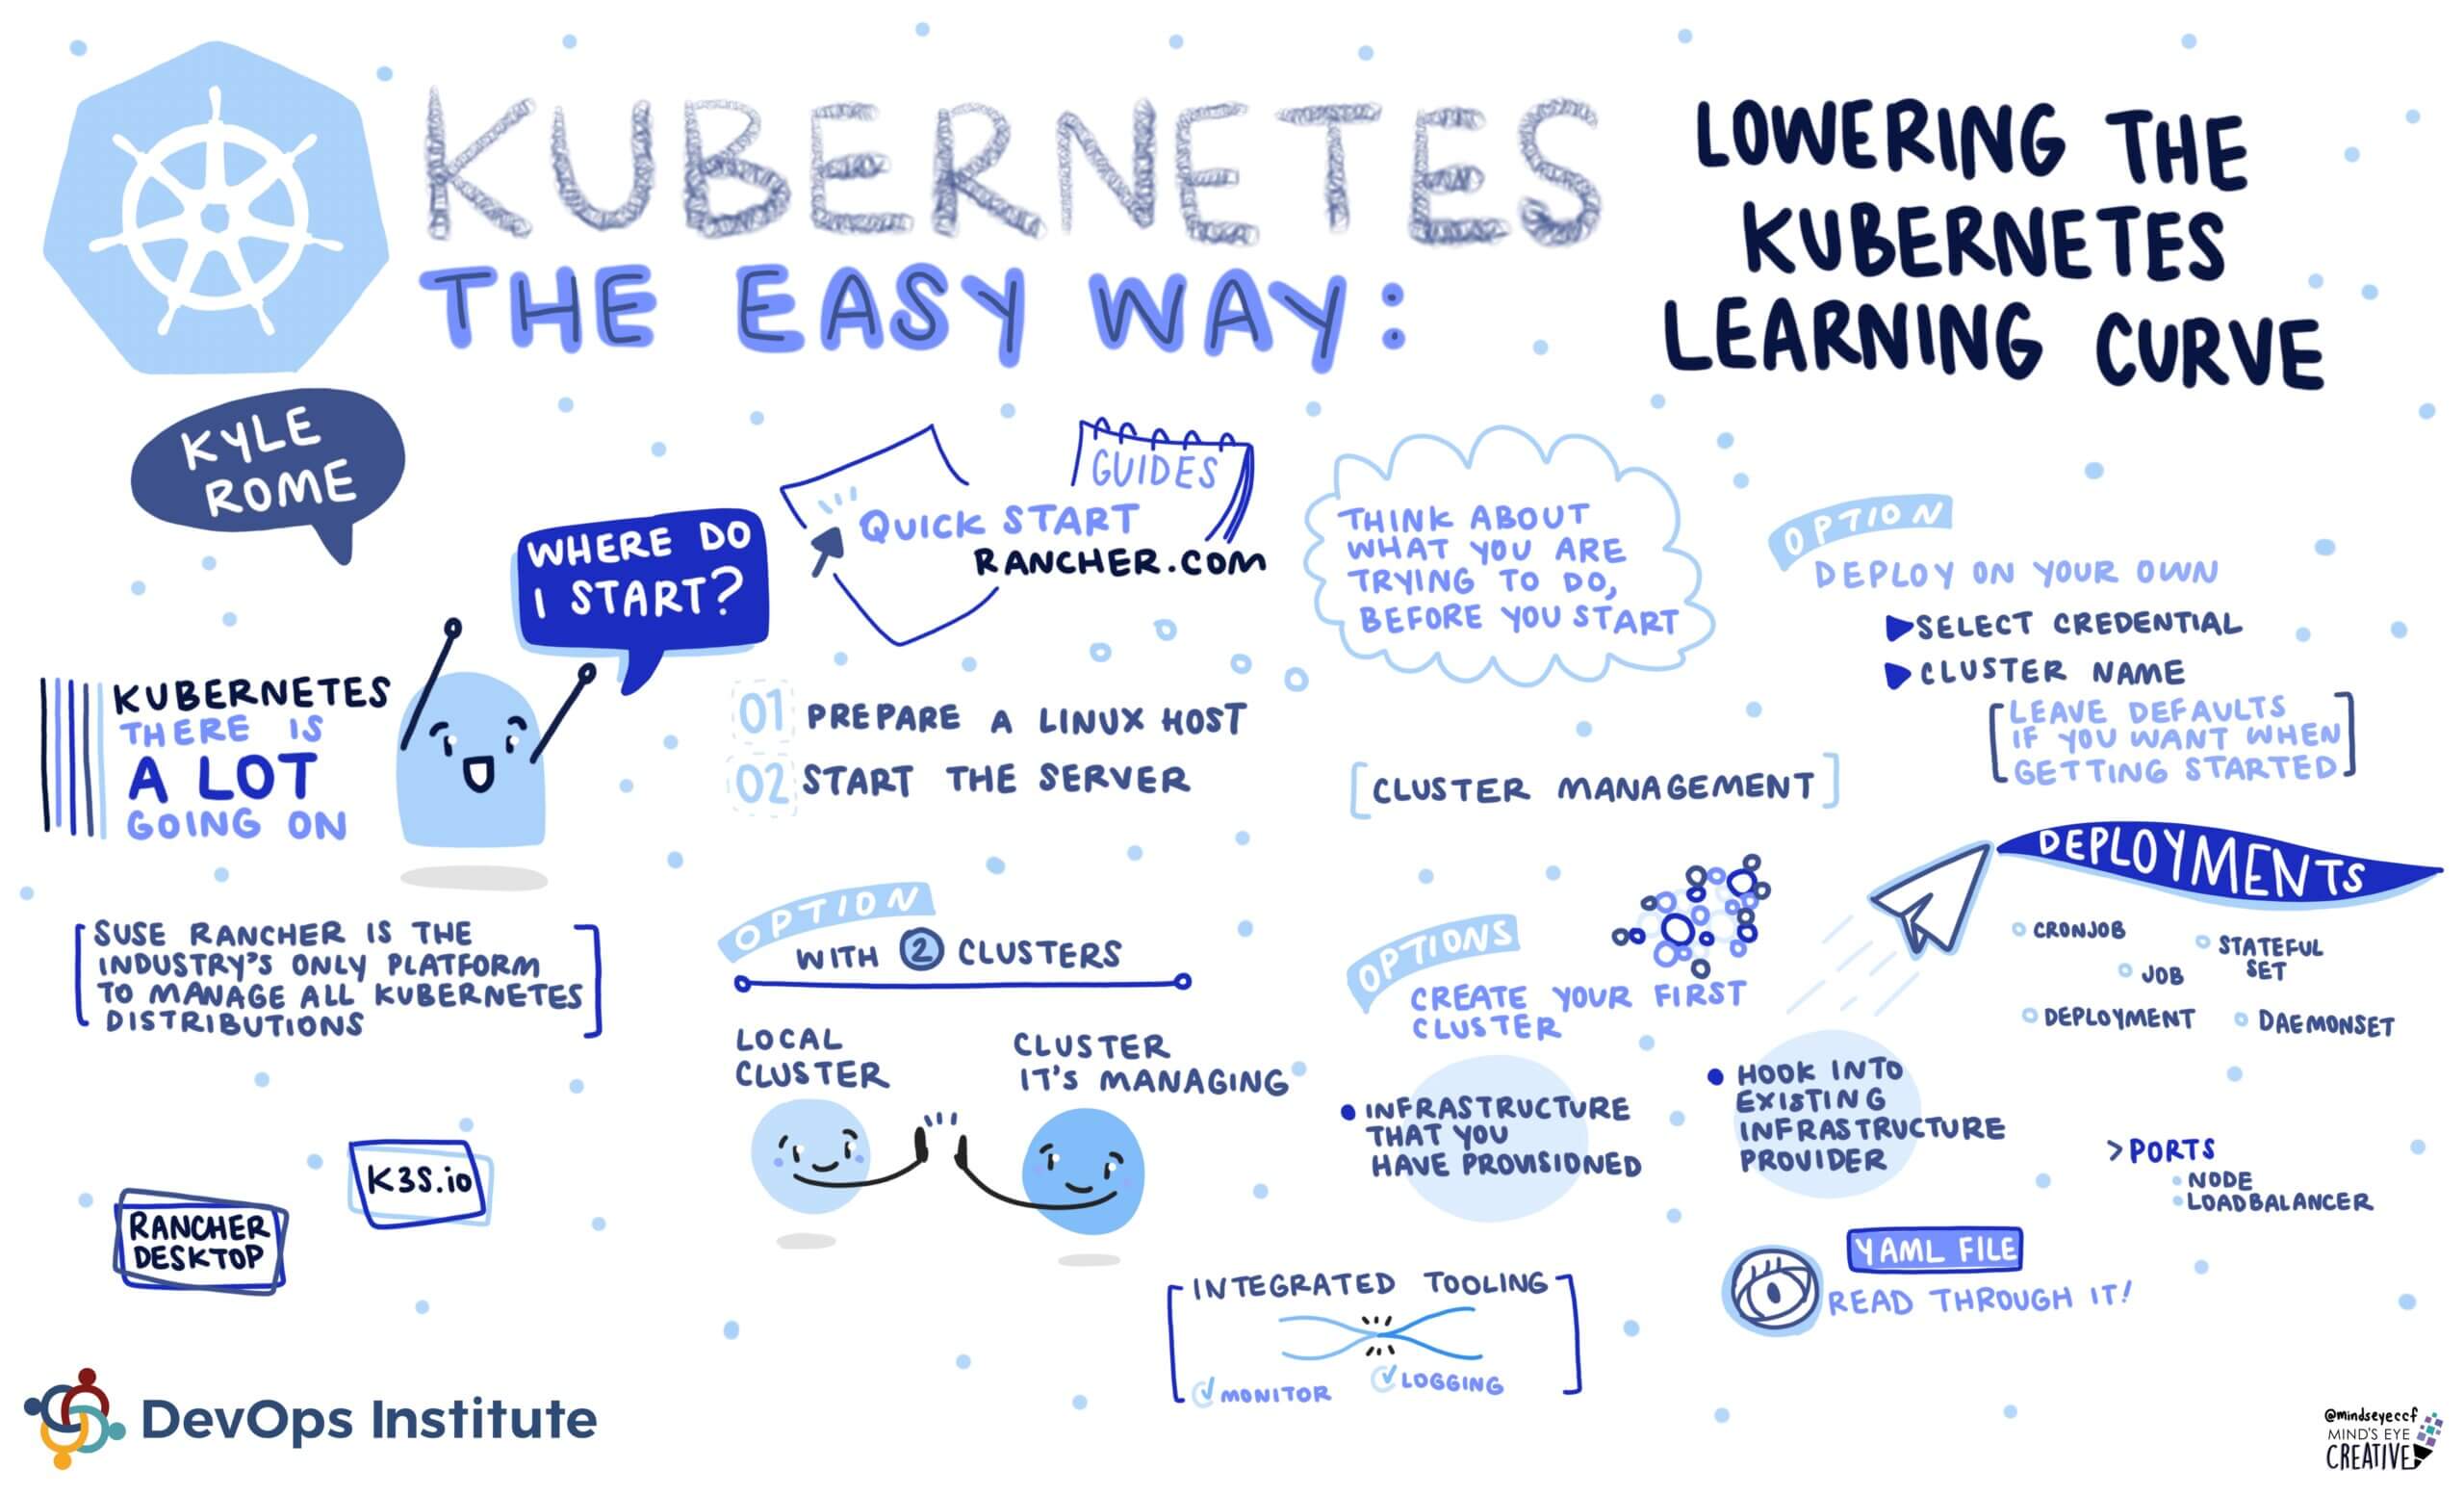 KUBERNETES
THE EASY WAY:
LOWERING THE
KUBERNETES
LEARNING CURVE
KYLE
ROME
WHERE DO
I START?
KUBERNETES
THERE IS
A LOT
GOING ON
SUSE RANCHER IS THE
INDUSTRY'S ONLY PLATFORM
TO MANAGE ALL KUBERNETES
DISTRIBUTIONS
K3S.io
RANCHER
DESKTOP
GUIDES
QUICK START
RANCHER.COM
01 PREPARE A LINUX HOST
02 START THE SERVER
OPTION
WITH 2 CLUSTERS
LOCAL
CLUSTER
CLUSTER
IT'S MANAGING
THINK ABOUT
WHAT YOU ARE
TRYING TO DO,
BEFORE YOU START
[CLUSTER MANAGEMENT]
OPTIONS
CREATE YOUR FIRST
CLUSTER
• INFRASTRUCTURE
THAT YOU
HAVE PROVISIONED
• HOOK INTO
EXISTING
INFRASTRUCTURE
PROVIDER
INTEGRATED TOOLING
MONITOR
LOGGING
OPTION
DEPLOY ON YOUR OWN
SELECT CREDENTIAL
CLUSTER NAME
LEAVE DEFAULTS
IF YOU WANT WHEN
GETTING STARTED
DEPLOYMENTS
CRONJOB
STATEFUL
SET
JOB
DEPLOYMENT
DAEMONSET
> PORTS
NODE
LOADBALANCER
YAML FILE
READ THROUGH IT!
DevOps Institute
@mindseyeccf
MIND'S EYE
CREATIVE